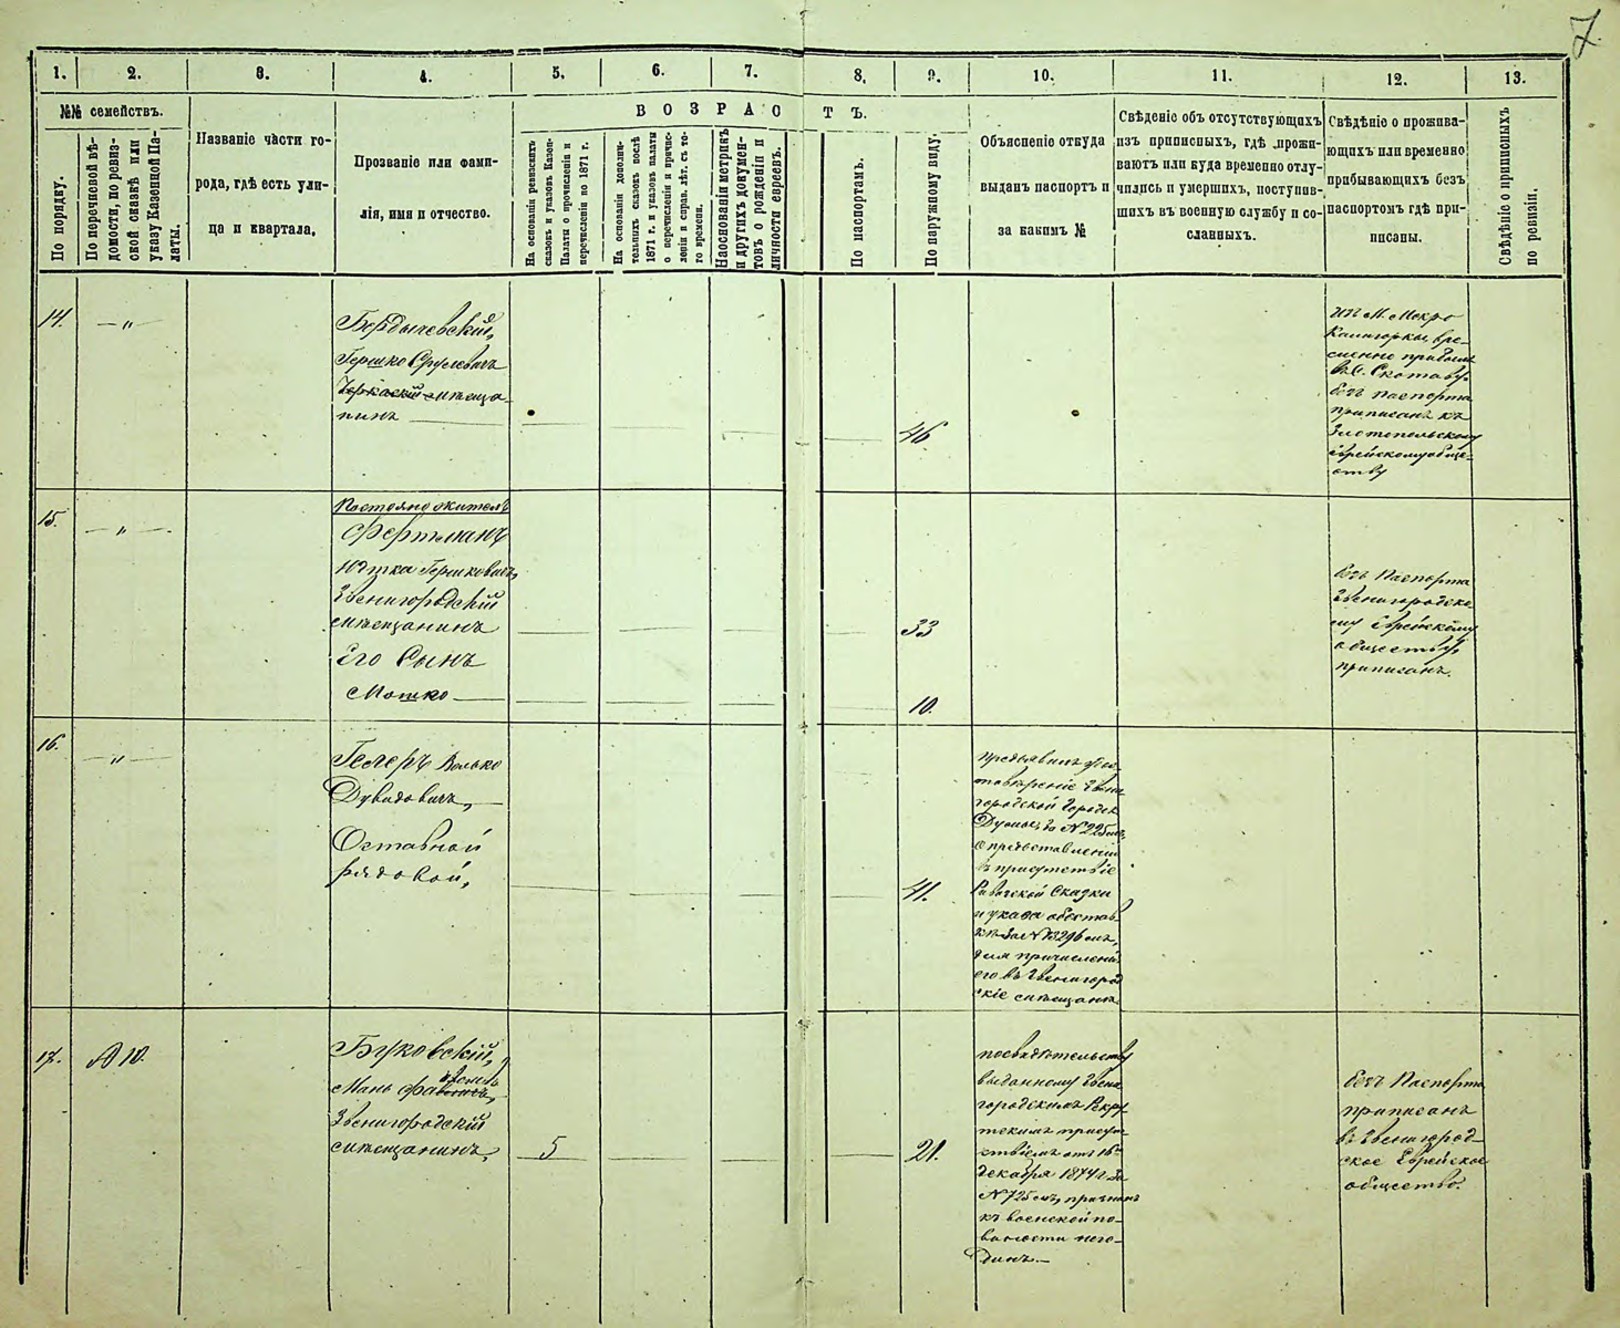 7.
1.
2.
3.
4.
5.
6.
7.
8.
9.
10.
11.
12.
13.
№№ семействъ.
По порядку.
По перечневой вѣ-
домости, по ревиз-
ской сказкѣ или
указу Казенной Па-
латы.
Названіе части го-
рода, гдѣ есть ули-
ца и квартала.
Прозваніе или фами-
лія, имя и отчество.
ВОЗРАСТЪ.
На основаніи ревизскихъ
сказокъ и указовъ Казен.
Палаты о прочисленіи и
перечисленіи по 1871 г.
На основаніи дополни-
тельныхъ сказокъ послѣ
1871 г. и указовъ палаты
о перечисленіи и причис-
леніи и справ. лѣт. съ то-
го времени.
На основаніи метрикъ
и другихъ докумен-
товъ о рожденіи и
личности евреевъ.
По паспортамъ.
По наружному виду.
Объясненіе откуда
выданъ паспортъ и
за какимъ №
Свѣденіе объ отсутствующихъ
изъ приписныхъ, гдѣ прожи-
ваютъ или куда временно отлу-
чились и умершихъ, поступив-
шихъ въ военную службу и со-
сланныхъ.
Свѣдѣніе о прожива-
ющихъ или временно
прибывающихъ безъ
паспортомъ гдѣ при-
писаны.
Свѣдѣніе о приписныхъ
по ревизіи.
14.
— " —
Бердычевскій,
Гершко Срулевичъ
Черкаскій мѣща-
нинъ
46
изъ М. Мокро
Калигорки, вре-
менно прибылъ
въ С.
безъ паспорта
приписанъ къ
Златопольскому
Еврейскому обще-
ству
15.
— " —
Постоянно жителъ
Фертманъ
Юдка Гершковичъ,
Звенигородскій
мѣщанинъ
33
Его Сынъ
Мошко
10.
безъ Паспорта
Звенигородско
му Еврейскому
обществу
приписанъ.
16.
— " —
Гегеръ Волько
Дувидовичъ,
Отставной
рядовой,
41.
предъявилъ удос-
товѣреніе Звени
городской Городск
Думы, за № 225мъ,
о представленіи
въ присутствіе
Ревизской Сказки
и указа объ отстав-
кѣ за № 13296 мъ,
для причисленія
его въ Звенигород
скіе мѣщане
17.
№ 10.
Буковскій,
Мань
Звенигородскій
мѣщанинъ,
5
21.
по свидѣтельству
выданному Звени
городскимъ Рекру
тскимъ присут-
ствіемъ отъ 16го
декабря 1874 г. за
№ 725 мъ, признанъ
къ воинской по-
винности него-
денъ.—
безъ Паспорта
приписанъ
въ Звенигород-
ское Еврейское
общество.